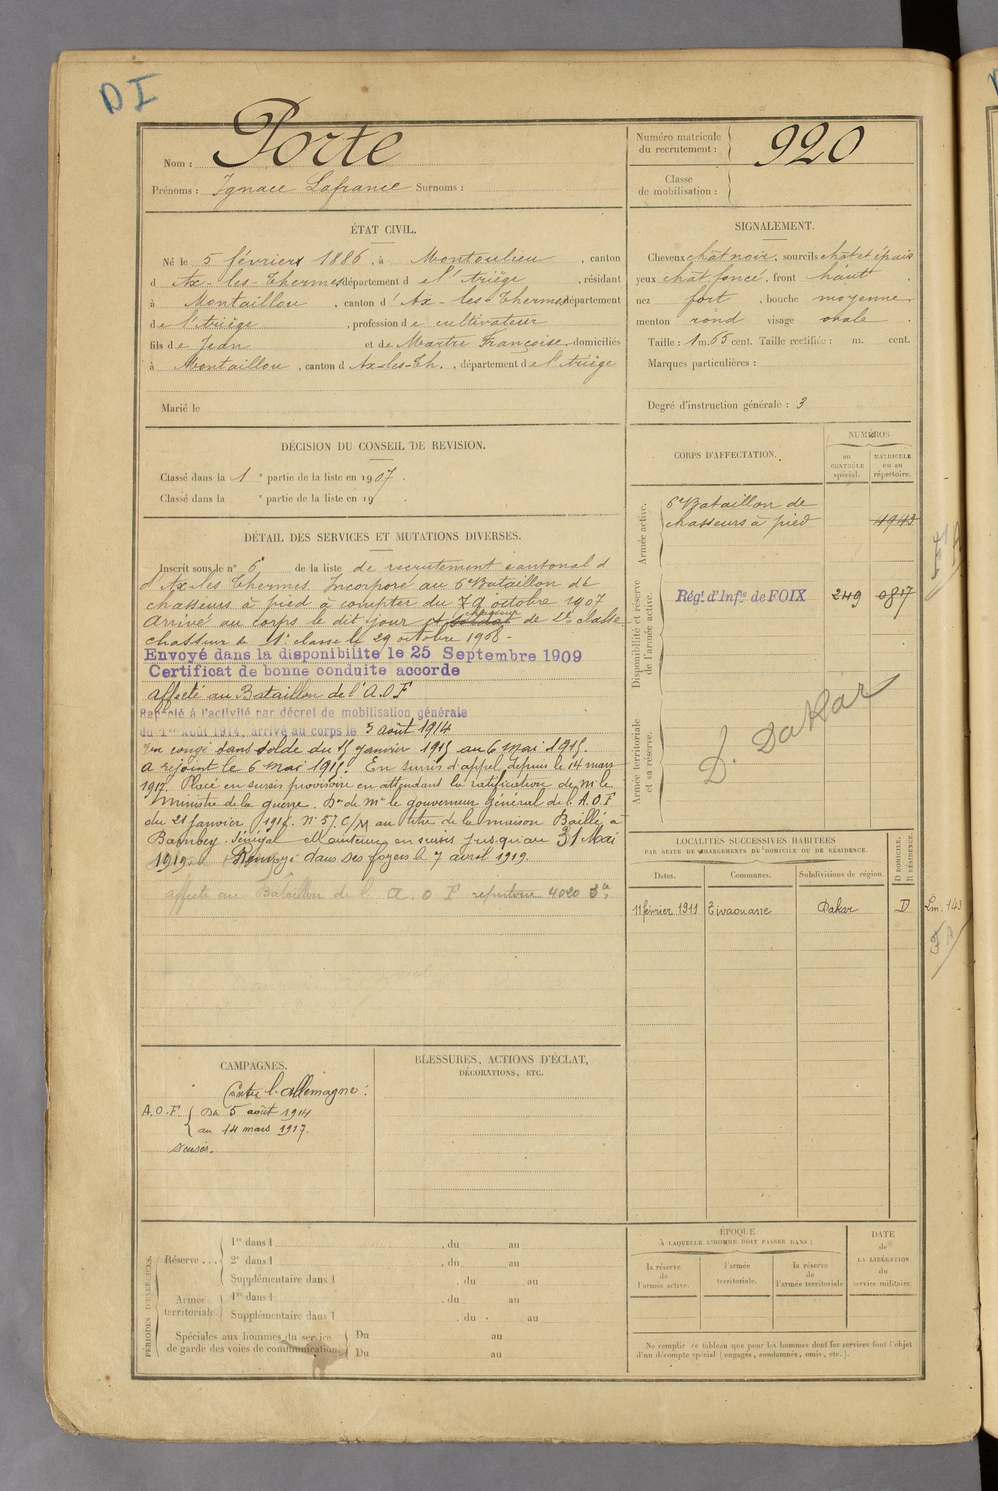 DI
Nom : Porte
Prénoms : Ignace Lafrance Surnoms :
Numéro matricule du recrutement : 920
Classe de mobilisation :
ÉTAT CIVIL.
Né le 5 février 1886, à Montoulieu, canton
d'Ax-les-Thermes département de l'Ariège, résidant
à Montaillou, canton d'Ax-les-Thermes département
de l'Ariège, profession de cultivateur
fils de Jean et de Martre Françoise domiciliés
à Montaillou, canton d Ax-les-Th., département de l'Ariège
Marié le
SIGNALEMENT.
Cheveux chât noir, sourcils chât et épais
yeux chat. foncé, front haut
nez fort, bouche moyenne.
menton rond visage ovale.
Taille : 1 m. 65 cent. Taille rectifiée : m. cent.
Marques particulières :
Degré d'instruction générale : 3
DÉCISION DU CONSEIL DE REVISION.
Classé dans la 1e partie de la liste en 1907.
Classé dans la e partie de la liste en 19 .
DÉTAIL DES SERVICES ET MUTATIONS DIVERSES.
Inscrit sous le n° 6 de la liste de recrutement cantonal d
d'Ax-les Thermes. Incorporé au 6e Bataillon de
chasseurs à pied à compter du 7 9 octobre 1907
Arrivé au corps le dit jour et soldat chasseur de 2e classe
chasseur de 1e classe le 29 octobre 1908 -
Envoyé dans la disponibilite le 25 Septembre 1909
Certificat de bonne conduite accorde
affecté au Bataillon de l'A.O.F
Rappelé à l'activité par décret de mobilisation générale
du 1er Août 1914, arrivé au corps le 5 août 1914
En congé sans solde du 15 janvier 1915 au 6 mai 1915.
A rejoint le 6 mai 1915. En sursis d'appel depuis le 14 mars
1917. Placé en sursis provisoire en attendant la ratification de Mr le
Ministre de la guerre. Don de Mr le gouverneur Général de l'A.O.F
du 21 janvier 1918 N° 57 C/M au titre de la maison Bailly à
Bambey Sénégal Maintenu en sursis jusqu'au 31 Mai
1919. Renvoyé dans ses foyers le 7 avril 1919.
affecté au Bataillon de l' A. O F repertoire 4020 Bis
CORPS D'AFFECTATION.
NUMÉROS
au CONTRÔLE spécial.
MATRICULE ou au répertoire.
Armée active.
6e Bataillon de
chasseurs à pied 4943
Disponibilité et réserve de l'armée active.
Régt. d'Infie de FOIX 249 0817
Armée territoriale et sa réserve.
D. Dakar
LOCALITÉS SUCCESSIVES HABITÉES
PAR SUITE DE CHANGEMENTS DE DOMICILE OU DE RÉSIDENCE.
Dates. Communes. Subdivisions de région. D DOMICILE, R RÉSIDENCE.
11 février 1911 Tivaouane Dakar D
Lm. 143
CAMPAGNES.
Contre l'Allemagne :
A.O.F. du 5 août 1914
au 14 mars 1917.
Sursis.
BLESSURES, ACTIONS D'ÉCLAT,
DÉCORATIONS, ETC.
PÉRIODES D'EXERCICES.
Réserve ... 1re dans l , du au
2e dans l , du au
Supplémentaire dans l , du au
Armée territoriale 1re dans l , du au
Supplémentaire dans l , du au
Spéciales aux hommes du service de garde des voies de communication Du au
Du au
ÉPOQUE
À LAQUELLE L'HOMME DOIT PASSER DANS :
la réserve de l'armée active.
l'armée territoriale.
la réserve de l'armée territoriale
DATE de LA LIBÉRATION du service militaire.
Ne remplir ce tableau que pour les hommes dont les services font l'objet
d'un décompte spécial (engagés, condamnés, omis, etc.).